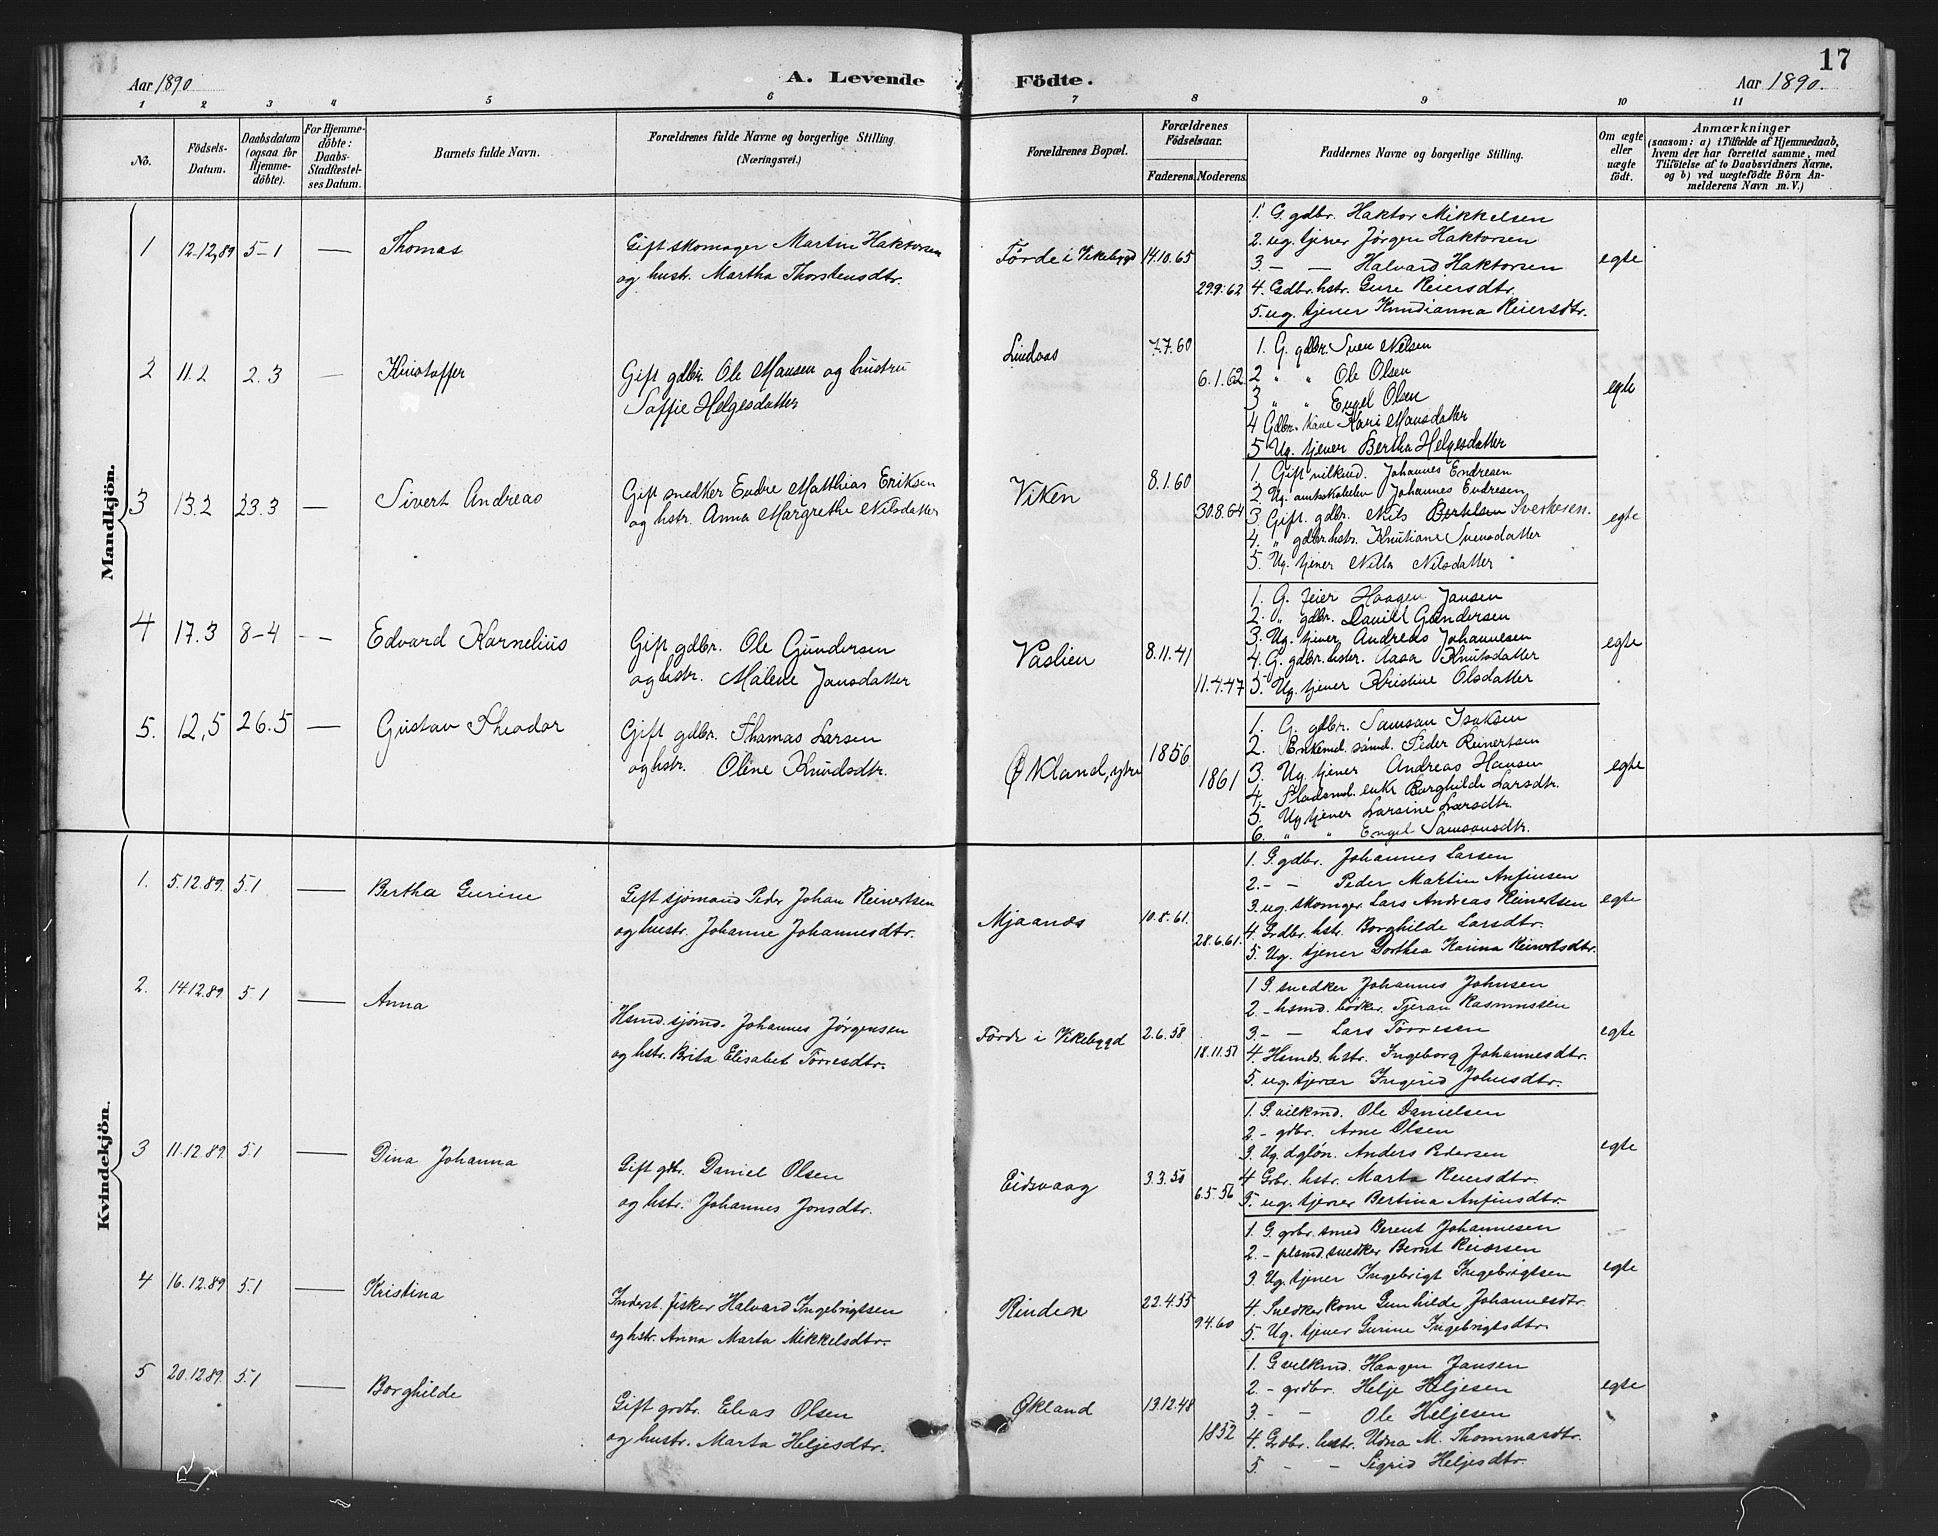 17
Aar 1890
A. Levende
Födte.
Aar 1890.
1 2 3 4 5 6 7 8 9 10 11
No.
Födsels-Datum.
Daabsdatum (ogsaa for Hjemme-döbte).
For Hjemme-döbte: Daabs-Stadfæstel-ses Datum.
Barnets fulde Navn.
Forældrenes fulde Navne og borgerlige Stilling (Næringsvei.)
Forældrenes Bopæl.
Forældrenes Födselsaar.
Faderens. Moderens.
Faddernes Navne og borgerlige Stilling.
Om ægte eller uægte födt.
Anmærkninger
(saasom: a) i Tilfælde af Hjemmedaab, hvem der har forrettet samme, med Tilföielse af to Daabsvidners Navne, og b) ved uægtefödte Börn An-melderens Navn m. V.)
Mandkjön.
1 12-12,89 5-1 — Thomas
Gift skomager Martin Haktorsen
og hustr. Martha Thorstensdtr.
Førde i Vikebygd 14.10.65 29.9.62
1. G. gdbr. Haktor Mikkelsen
2. ug. tjener Jørgen Haktorsen
3. — — Halvard Haktorsen
4. Gdbr. hstr. Gure Reiersdtr.
5. ug. tjener Knudianna Reiersdtr.
egte
2 11.2 2.3 — Kristoffer
Gift gdbr. Ole Mansen og hustru
Soffie Helgesdatter
Lindaas 7.7.60 6.1.62
1. G. gdbr. Sven Nilsen
2 " " Ole Olsen
3 " " Engel Olsen
4 Gdbr. kone Kari Mansdatter
5 Ug. tjener Bertha Helgesdatter
egte
3 13.2 23.3 — Sivert Andreas
Gift snedker Endre Matthias Eriksen
og hstr. Anna Margrethe Nilsdatter
Viken 8.1.60 30.8.64
1. Gift vilkmd. Johannes Endresen
2. Ug. Johannes Endresen
3. Gift. gdbr. Nils Bertelsen Sverkesen.
4. " gdbr. hstr. Knutiane Svensdatter
5. Ug. tjener Nilla Nilsdatter
egte
4 17.3 8-4 - - Edvard Kornelius
Gift gdbr. Ole Gundersen
og hstr. Malene Jansdatter
Vaslien 8.11.41 11.4.47
1. G. feier Haagen Jansen
2. " gdbr. Daniel Gundersen
3. Ug. tjener Andreas Johannesen
4. G. gdbr. hstr. Aasa Knutsdatter
5. Ug. tjener Kristine Olsdatter
egte
5. 12,5 26.5 — Gustav Theodor
Gift gdbr. Thomas Larsen
og hstr. Oline Knudsdtr.
Økland, ytre 1856 1861
1. G. gdbr. Samson Isaksen
2. Enkemd. sømd. Peder Reinertsen
3. Ug. tjener Andreas Hansen
4. enke Borghilde Larsdtr.
5. Ug tjener Larsine Larsdtr.
6. " " Engel Samsonsdtr.
egte
Kvindekjön.
1. 5.12.89. 5.1 — Bertha Gurine
Gift sjømand Peder Johan Reinertsen
og hustr. Johanne Johannesdtr.
Mjaanes 10.8.61. 28.6.61.
1. G. gdbr. Johannes Larsen
2. - - Peder Martin Anfinsen
3. ug. skomger Lars Andreas Reinertsen
4. Grdbr. hstr. Borghilde Larsdtr.
5. Ug. tjener Dorthea Karina Reinertsdtr.
egte
2. 14.12.89. 5.1 — Anna
Hsmd. sjømd. Johannes Jørgensen
og hstr. Brita Elisabet Torresdtr.
Førde i Vikebygd 2.6.58 18.11.51
1 G. snedker Johannes Johnsen
2. - hsmd. bødker. Tjeran Rasmussen
3. - - Lars Torresen
4. Hsmds. hstr. Ingeborg Johannesdtr.
5. ug. tjener Ingerid Johnsdtr.
egte
3 11.12.89. 5.1 — Dina Johanna
Gift gdbr. Daniel Olsen
og hstr. Johannes Jonsdtr.
Eidsvaag 3.3.50 6.5.56
1. G. vilkmd. Ole Danielsen
2. - gdbr. Arne Olsen
3. Ug. dgløn. Anders Pedersen
4 Grbr. hstr. Marta Reiersdtr.
5. ug. tjener Bertina Anfinsdtr.
egte
4 16.12.89 5.1 — Kristina
Inderst. fisker Halvard Ingebrigtsen
og hstr. Anna Marta Mikkelsdtr.
Rinden 22.4.55 9.4.60
1. G. grbr. smed Berent Johannesen
2. - plsmd. snedker Bernt Reiersen
3. Ug. tjener Ingebrigt Ingebrigtsen
4. Snedker kone Gunhilde Johannesdtr.
5. Ug. tjener Gurine Ingebrigtsdtr.
egte
5 20.12.89. 5.1 — Borghilde
Gift grdbr. Elias Olsen
og hustr. Marta Heljesdtr.
Økland 13.12.48 1852
1. G vilkmd. Haagen Jansen
2. - grdbr. Helje Heljesen
3. - - Ole Heljesen
4. Grdbr. hustr. Udna M. Thommasdtr.
5. - - Sigrid Heljesdtr.
egte